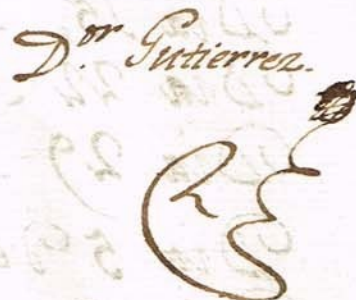 D.or Gutierrez.